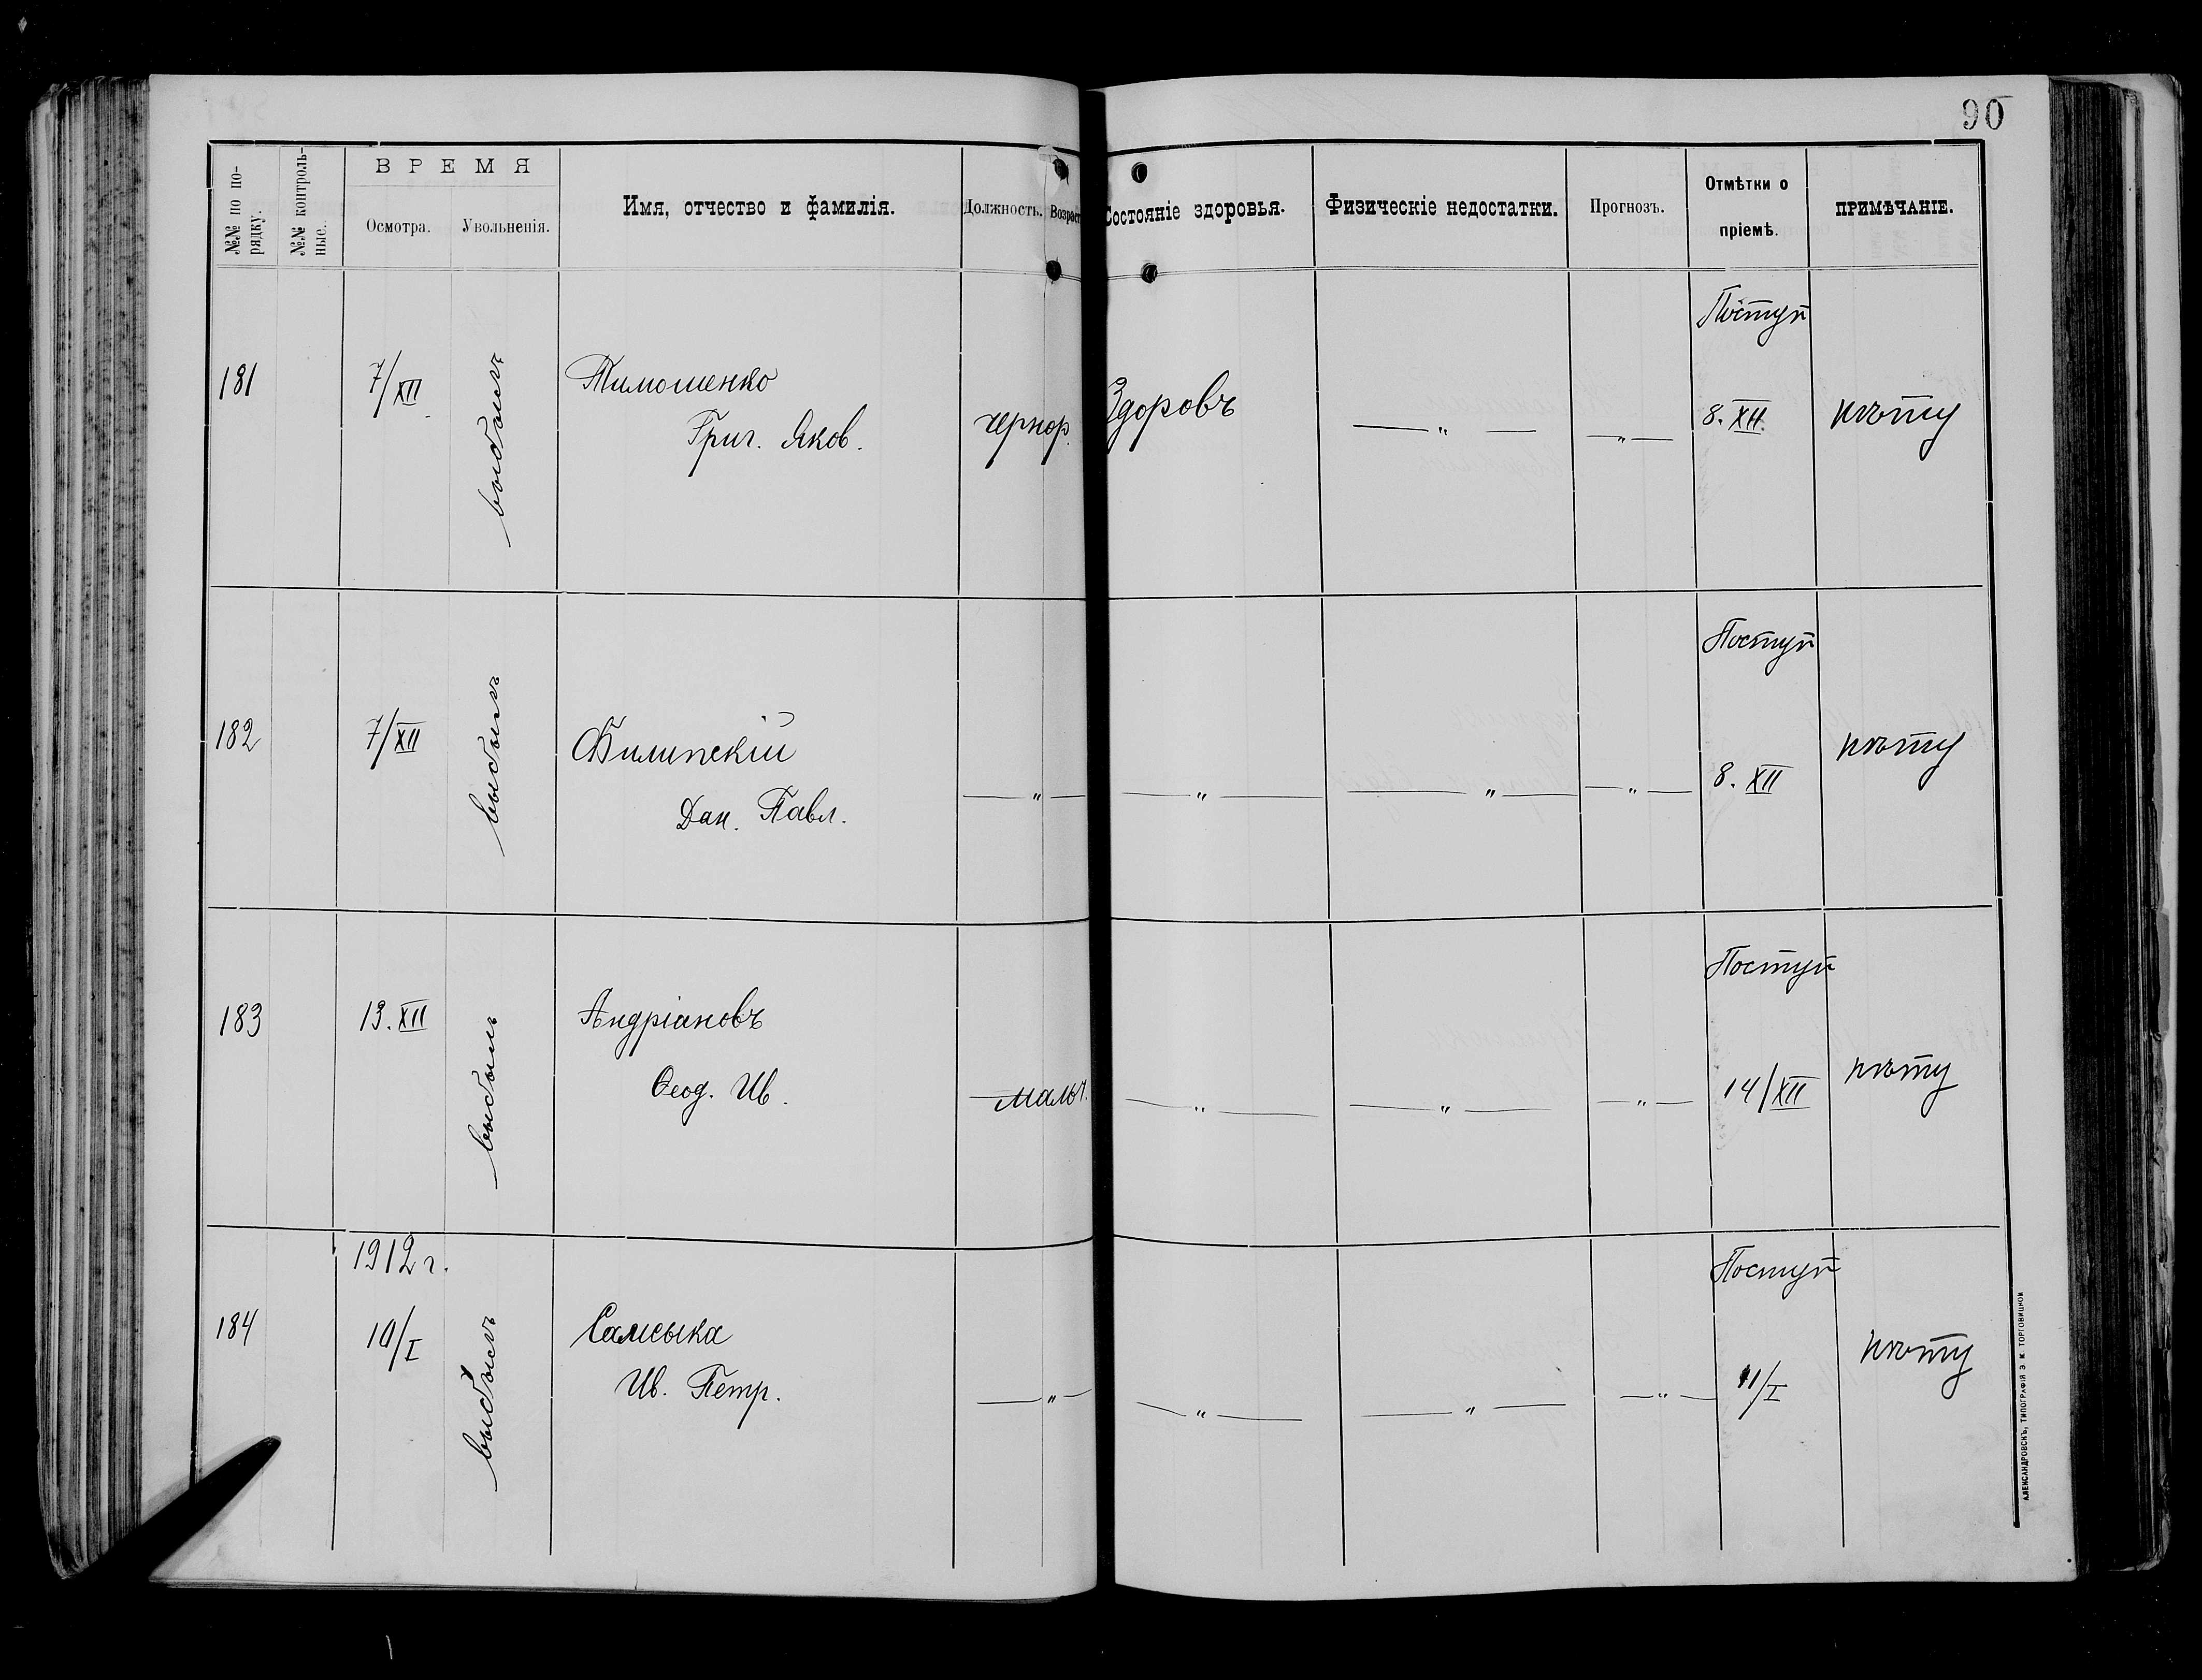 90
№№ по по-
рядку.
№№ контроль-
ные.
ВРЕМЯ
Осмотра.
Увольненія.
Имя, отчество и фамилія.
Должность.
Возраст
Состояніе здоровья.
Физическіе недостатки.
Прогнозъ.
Отмѣтки о
пріемѣ.
ПРИМѢЧАНІЕ.
181
7/XII
выбылъ
Тимошенко
Григ. Яков.
чернор.
Здоровъ
— " —
— " —
Поступ
8. XII.
нѣту
182
7/XII
выбылъ
Филипскій
Дан. Павл.
— " —
— " —
— " —
— " —
Поступ
8. XII
нѣту
183
13. XII
выбылъ
Андріановъ
Ѳеод. Ив.
мальч.
— " —
— " —
— " —
Поступ
14/XII
нѣту
184
1912 г.
10/I
выбылъ
Самсыка
Ив. Петр.
— " —
— " —
— " —
— " —
Поступ
11/I
нѣту
АЛЕКСАНДРОВСКЪ, ТИПОГРАФІЯ Э. М. ТОРГОВИЦКОЙ